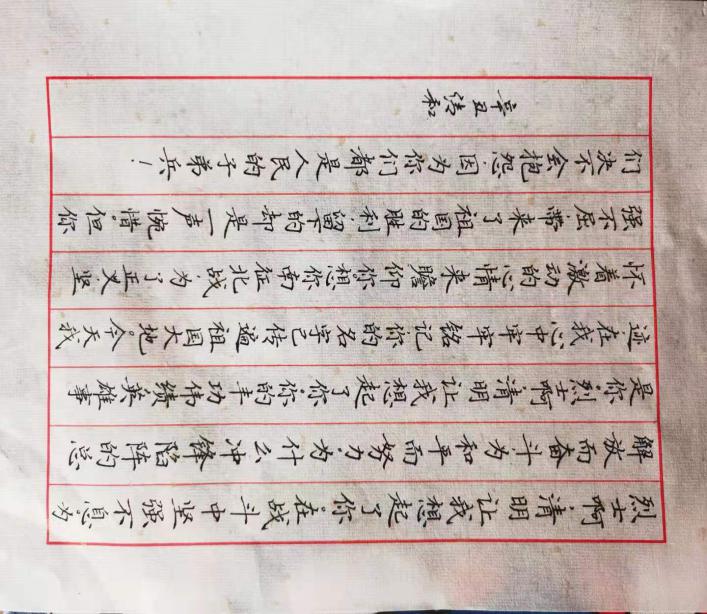 烈士啊,清明让我想起了你,在战斗中坚强不息,为
解放而奋斗,为和平而努力,为什么冲锋陷阵的总
是你,烈士啊,清明让我想起了你,你的丰功伟绩,英雄事
迹在我心中牢牢铭记,你的名字已传遍祖国大地。今天我
怀着激动的心情来瞻仰你,想你南征北战,为了正义坚
强不屈,带来了祖国的胜利,留下的却是一声惋惜,但你
们决不会抱怨,因为你们都是人民的子弟兵!
辛丑传和